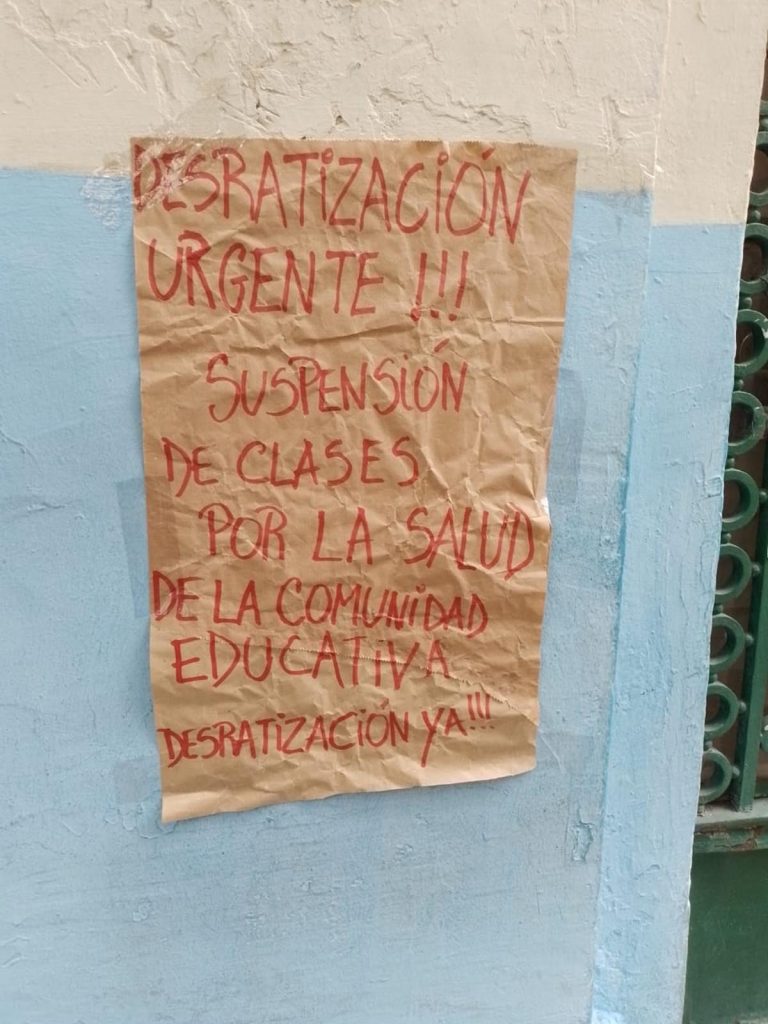 DESRATIZACIÓN
URGENTE !!!
SUSPENSIÓN
DE CLASES
POR LA SALUD
DE LA COMUNIDAD
EDUCATIVA
DESRATIZACIÓN YA!!!